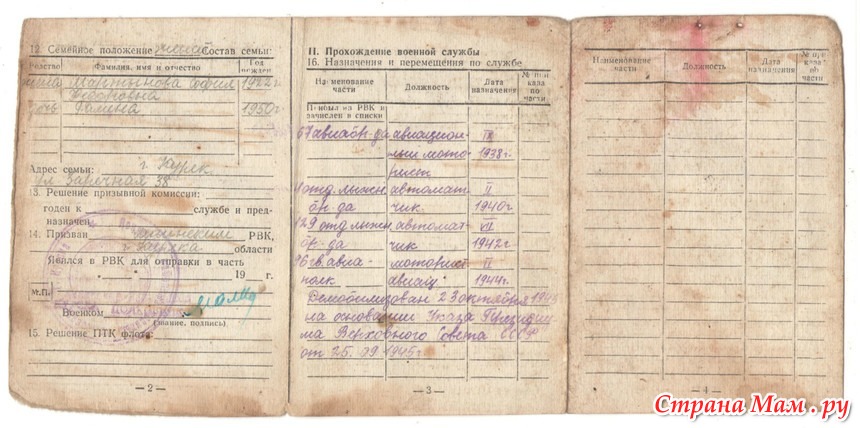 12. Семейное положение жена Состав семьи:
Родство
Фамилия, имя и отчество
Год рожден.
жена Мартынова София 1922г
дочь Галина 1950г
Адрес семьи: г.
ул Заречная 38
13. Решение призывной комиссии:
годен к службе и пред-
назначен
14. Призван РВК,
г. области
Явился в РВК для отправки в часть
19 г.
М.П.
Военком
(звание, подпись)
15. Решение ПТК флота:
— 2 —
II. Прохождение военной службы
16. Назначения и перемещения по службе
Наименование части
Должность
Дата назначения
№ приказа по части
Прибыл из РВК и
зачислен в списки
67 авиабр-да авиацион- IX
ный мото- 1938г.
рист
отд. лыжн автомат II
бр-да чик 1940г
129 отд лыжн автомат- XII
бр-да чик 1942г
96 гв. авиа- моторист II
полк авиац 1944г
Демобилизован 23 октября 1945
на основании Указа Президиу
ма Верховного Совета СССР
от 25. 09 1945г.
— 3 —
Наименование части
Должность
Дата назначения
№ приказа об части
— 4 —
Страна Мам.ру